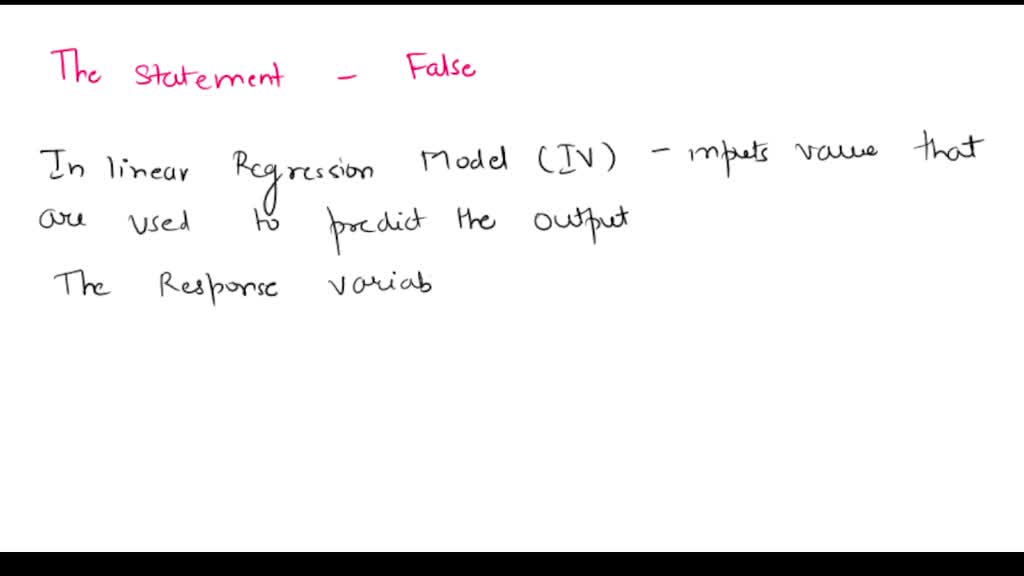 The Statement - False
In linear Regression Model (IV) - inputs value that
are used to predict the output
The Response variab